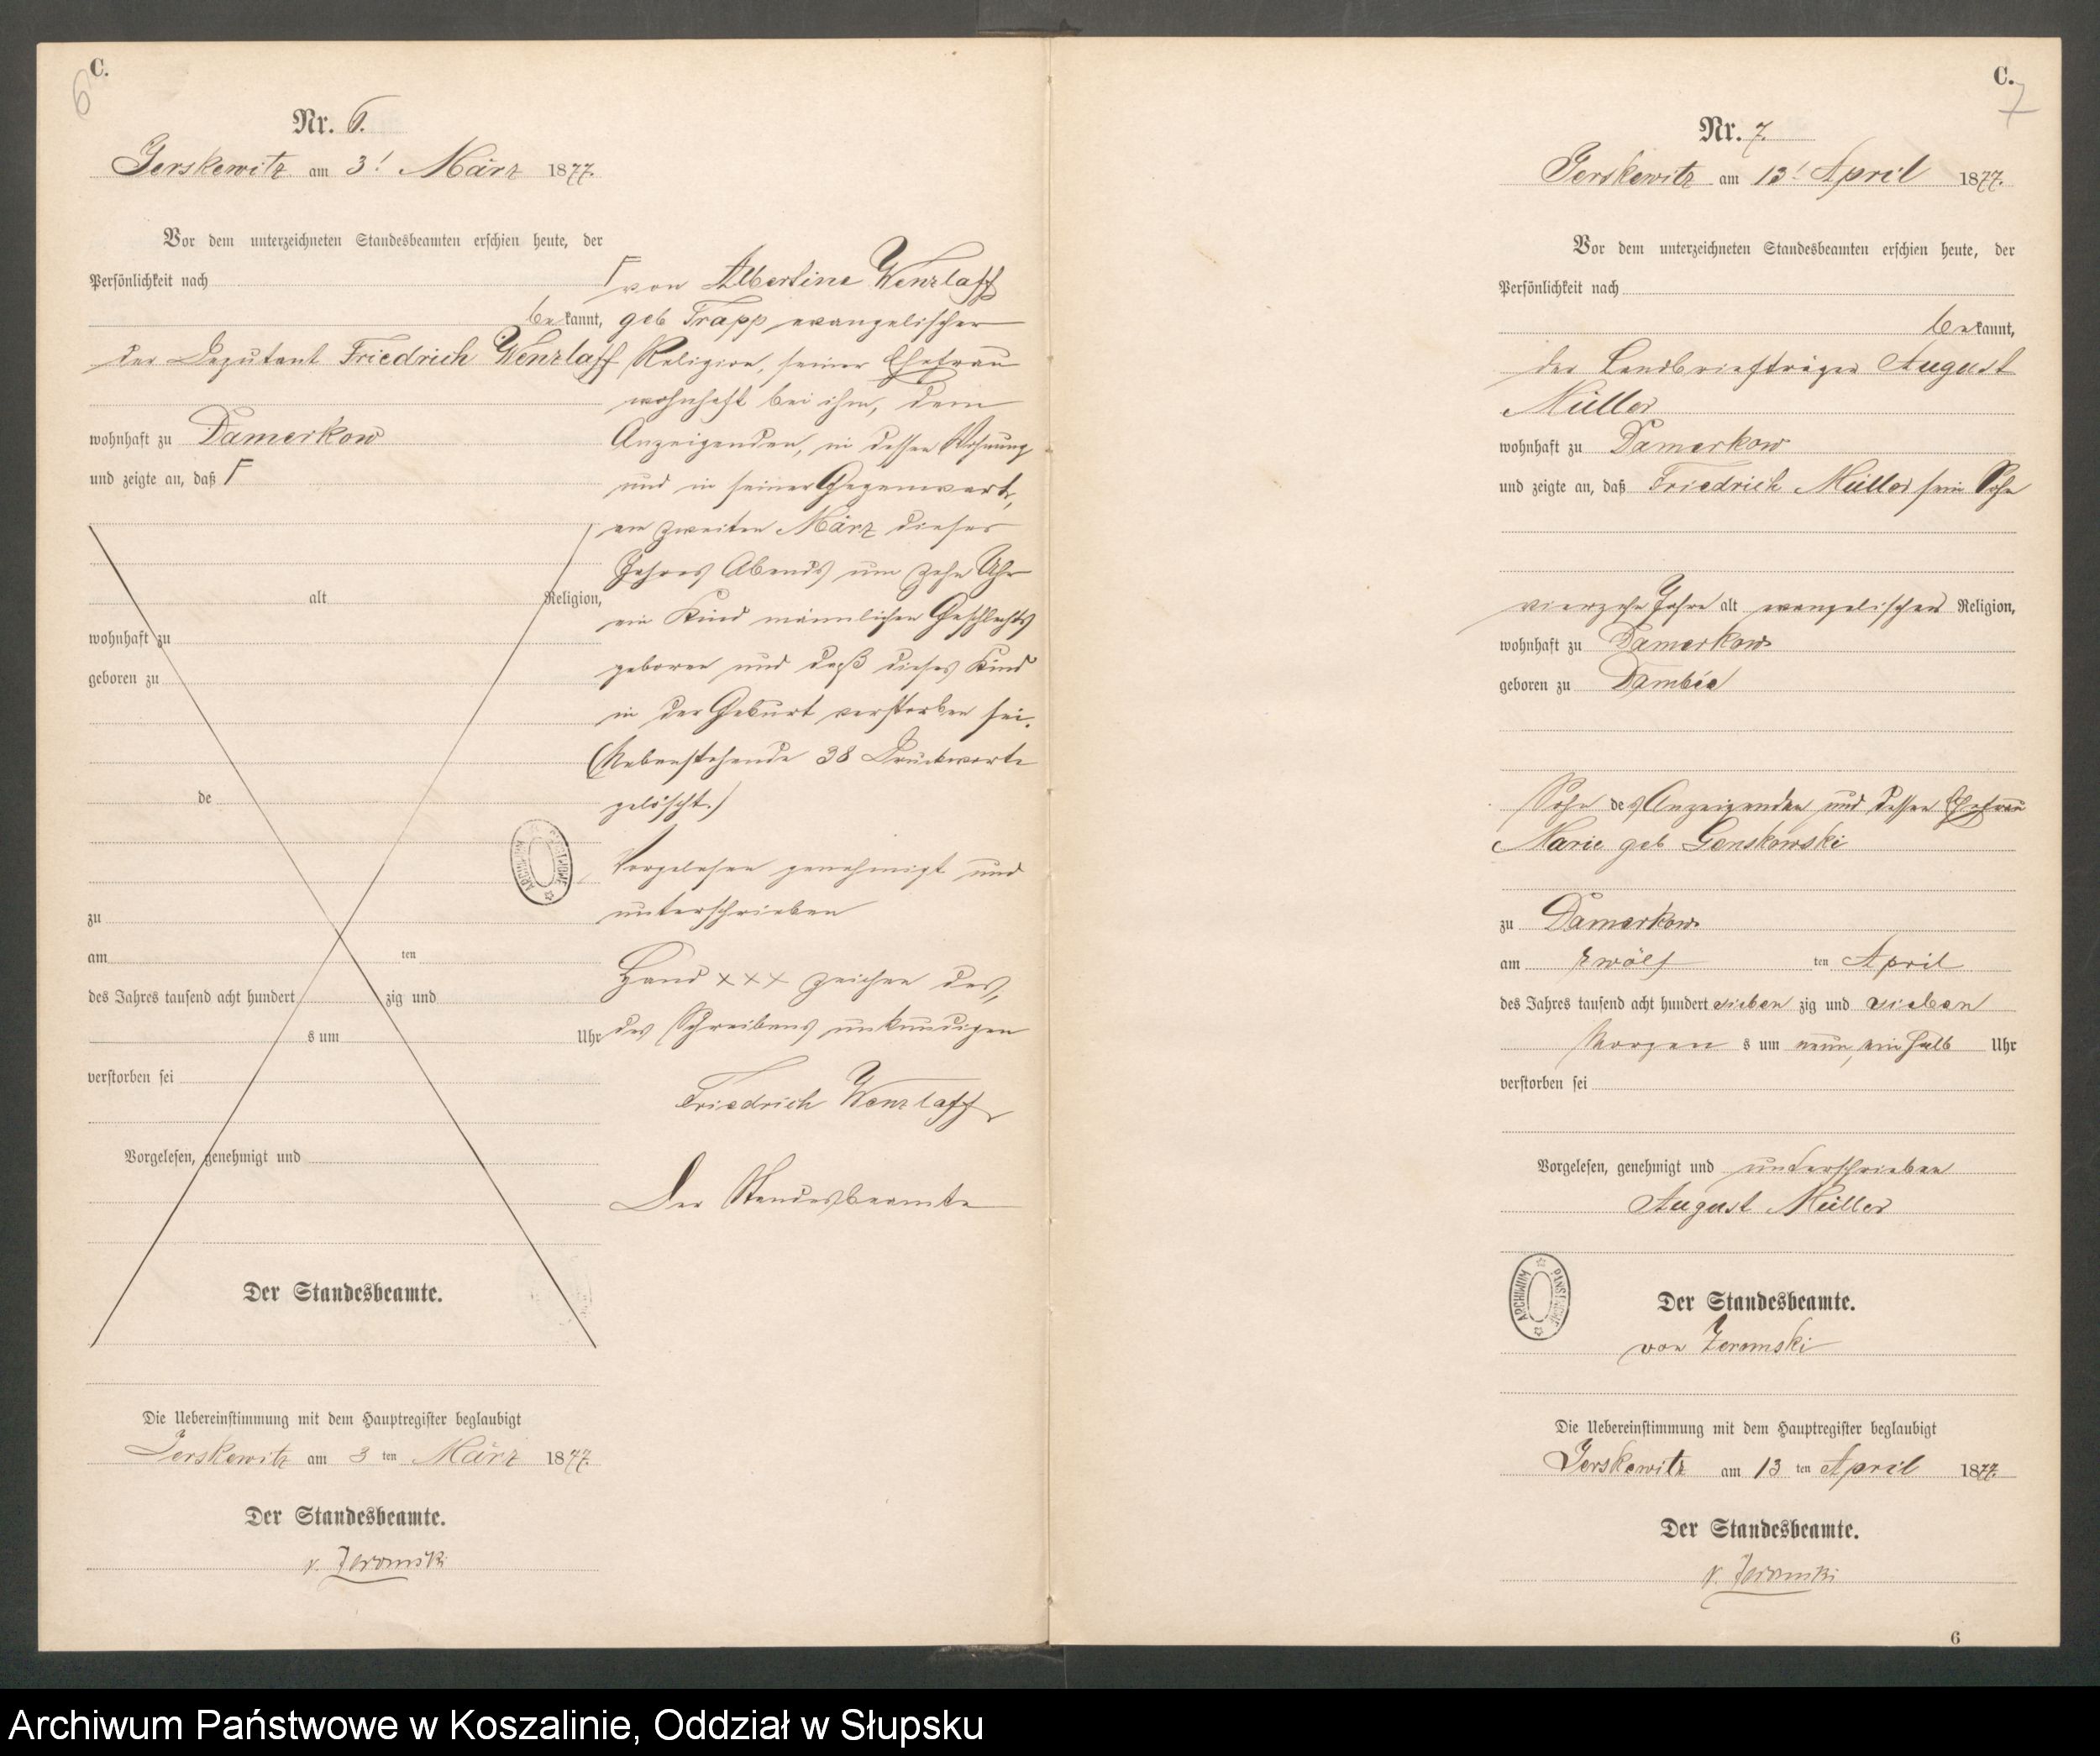 C.
6
Nr. 6.
Jerskewitz am 3t März 1877.
Vor dem unterzeichneten Standesbeamten erschien heute, der
Persönlichkeit nach
bekannt,
der Deputant Friedrich Wenzlaff
wohnhaft zu Damerkow
und zeigte an, daß Γ
alt Religion,
wohnhaft zu
geboren zu
de
zu
am ten
des Jahres tausend acht hundert zig und
s um Uhr
verstorben sei
Vorgelesen, genehmigt und
Der Standesbeamte.
Die Uebereinstimmung mit dem Hauptregister beglaubigt
Jerskewitz am 3 ten März 1877.
Der Standesbeamte.
v. Zeromski
Γ von Albertine Wenzlaff
geb Trapp evangelischer
Religion, seiner Ehefrau
wohnhaft bei ihm, dem
Anzeigenden, in dessen Wohnung
und in seiner Gegenwart,
am zweiten März dieses
Jahres Abends um zehn Uhr
ein Kind männlichen Geschlechts
geboren und daß dieses Kind
in der Geburt verstorben sei.
(Nebenstehende 38 Druckworte
gelöscht.)
Vorgelesen genehmigt und
unterschrieben
Hand xxx zeichen des,
des Schreibens unkundigen
Friedrich Wenzlaff
Der Standesbeamte
ARCHIWUM PAŃSTWOWE
C.
7
Nr. 7.
Jerskewitz am 13t April 1877.
Vor dem unterzeichneten Standesbeamten erschien heute, der
Persönlichkeit nach
bekannt,
der Landbriefträger August
Müller
wohnhaft zu Damerkow
und zeigte an, daß Friedrich Müller sein Sohn
vierzehn Jahre alt evangelischer Religion,
wohnhaft zu Damerkow
geboren zu Dambée
Sohn des Anzeigenden und dessen Ehefrau
Marie geb Genskowski
zu Damerkow
am zwölf ten April
des Jahres tausend acht hundert sieben zig und sieben
Morgen s um neun, ein halb Uhr
verstorben sei
Vorgelesen, genehmigt und unterschrieben
August Müller
ARCHIWUM PAŃSTWOWE
Der Standesbeamte.
von Zeromski
Die Uebereinstimmung mit dem Hauptregister beglaubigt
Jerskewitz am 13 ten April 1877.
Der Standesbeamte.
v. Zeromski
6
Archiwum Państwowe w Koszalinie, Oddział w Słupsku